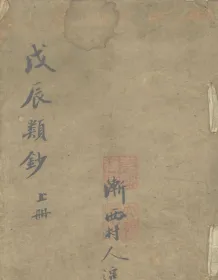 戊辰類鈔 上冊
漸西村人